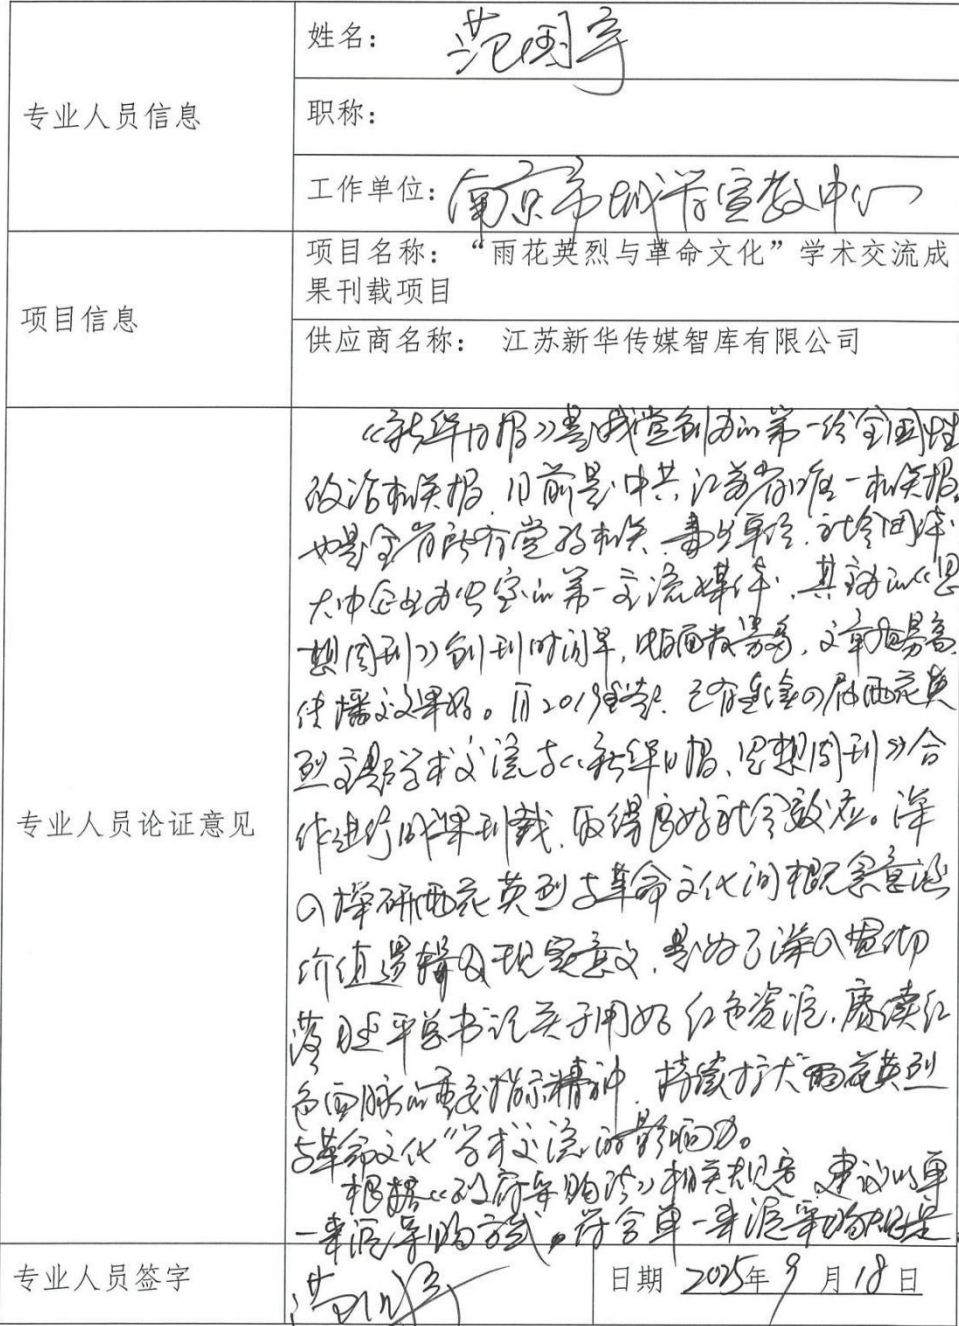 专业人员信息
姓名：范国宇
职称：
工作单位：南京市城管宣教中心
项目信息
项目名称：“雨花英烈与革命文化”学术交流成
果刊载项目
供应商名称： 江苏新华传媒智库有限公司
专业人员论证意见
《新华日报》是我党创办的第一份全国性
政治机关报，目前是中共江苏省唯一机关报，
也是全省所有党政机关、事业单位、社会团体
大中企业办公室的第一交流媒体，其主办的《思
想周刊》创刊时间早，版面较多，文章质量高，
传播效果好。自2019年起，已有连续四届雨花英
烈主题学术交流与《新华日报·思想周刊》合
作进行成果刊载，取得良好社会效应。深
入探研雨花英烈与革命文化间概念意涵
价值逻辑及现实意义，是为了深入贯彻
落实习近平总书记关于用好红色资源，赓续红
色血脉的重要指示精神，持续扩大“雨花英烈
与革命文化”学术交流的影响力。
根据《政府采购法》相关规定，建议以单
一来源采购方式，符合单一来源采购规定
专业人员签字
日期 2025年9月18日